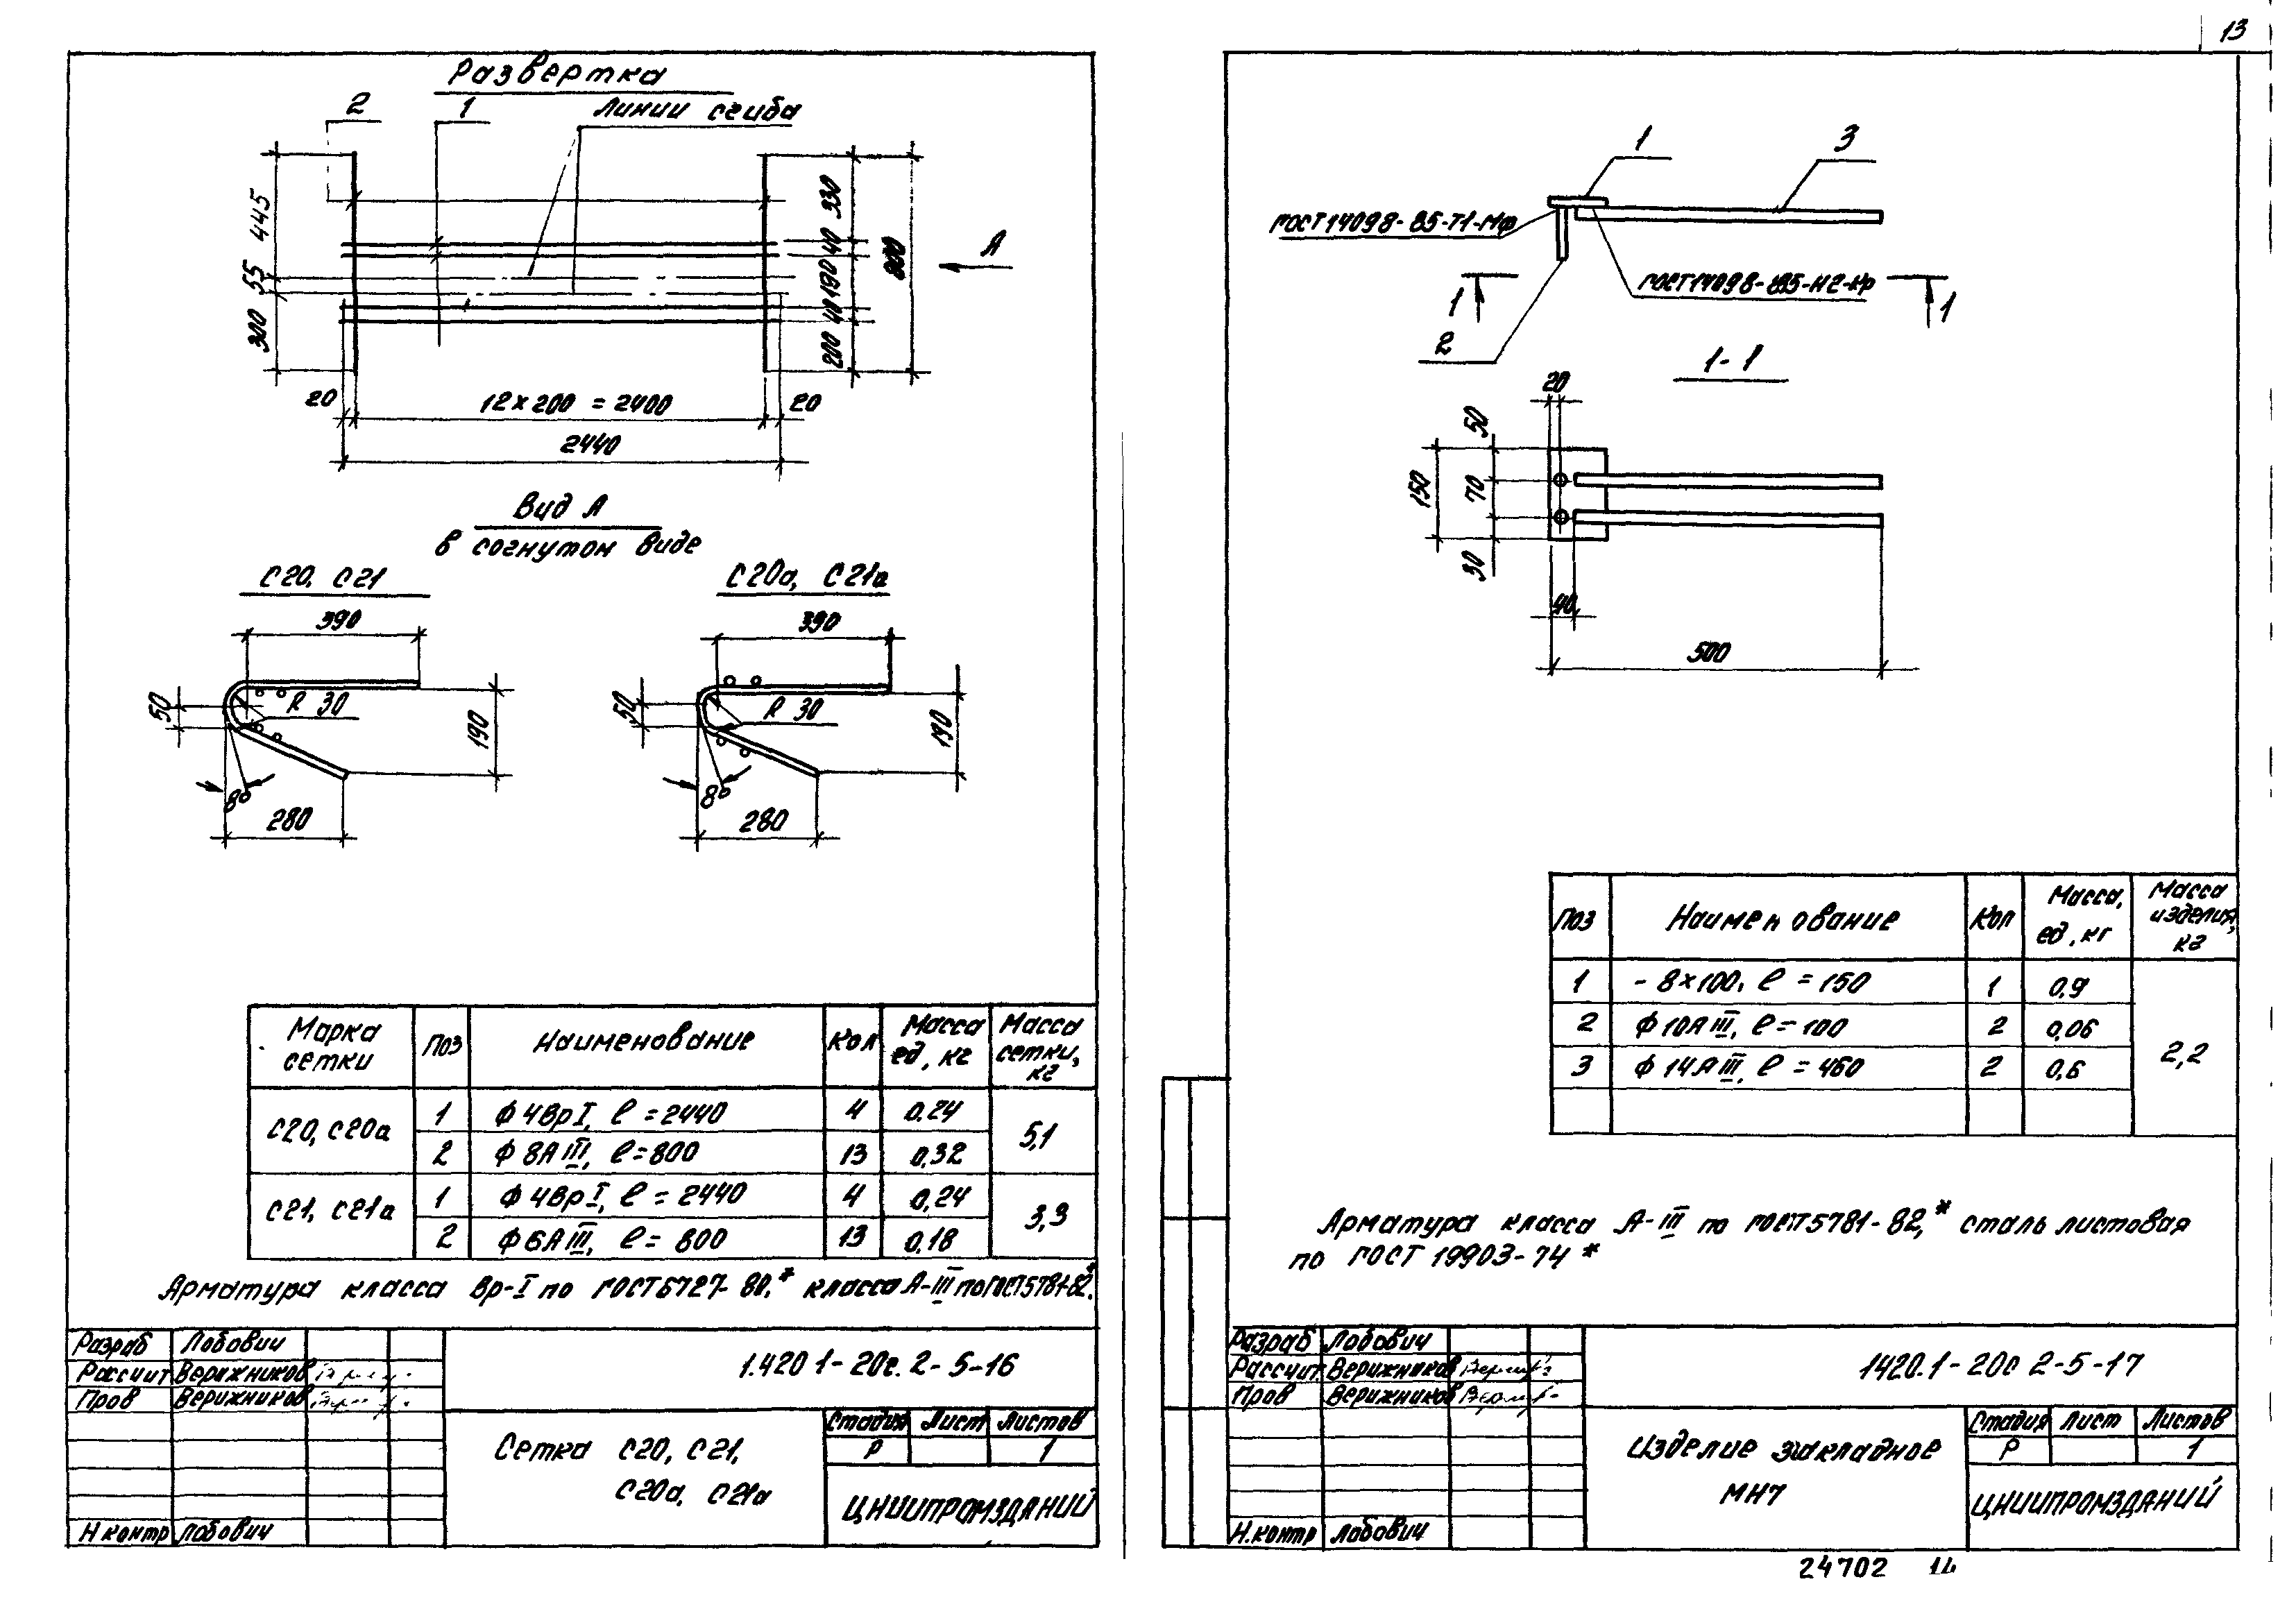 13
Развертка
2 1 линии сгиба
445
55
300
330
40
190
40
200
800
А
20 12×200 = 2400 20
2440
Вид А
в согнутом виде
С20, С21 С20а, С21а
390 390
50 R 30 190 50 R 30 190
8° 8°
280 280
Марка сетки Поз Наименование Кол Масса ед, кг Масса сетки, кг
С20, С20а 1 ф 4Вр I, ℓ = 2440 4 0,24 5,1
2 ф 8А III, ℓ = 800 13 0,32
С21, С21а 1 ф 4Вр I, ℓ = 2440 4 0,24 3,3
2 ф 6А III, ℓ = 800 13 0,18
Арматура класса Вр-I по ГОСТ 6727-80,* класса А-III по ГОСТ 5781-82*.
Разраб Лобович
Рассчит Верижников
Пров Верижников
Н контр Лобович
1.420 1-20с. 2-5-16
Сетка С20, С21,
С20а, С21а
Стадия Лист Листов
Р 1
ЦНИИПРОМЗДАНИЙ
1 3
ГОСТ 14098-85-Т1-Мф
ГОСТ 14098-85-Н2-Кр
1 1
2
1-1
20
50
150 70
30
40
500
Поз Наименование Кол Масса, ед, кг Масса изделия, кг
1 - 8×100, ℓ = 150 1 0,9 2,2
2 ф 10А III, ℓ = 100 2 0,06
3 ф 14А III, ℓ = 460 2 0,6
Арматура класса А-III по ГОСТ 5781-82,* сталь листовая
по ГОСТ 19903-74 *
Разраб Лобович
Рассчит Верижников
Пров Верижников
Н.контр Лобович
1420.1-20с 2-5-17
Изделие закладное
МН7
Стадия Лист Листов
Р 1
ЦНИИПРОМЗДАНИЙ
24702 14